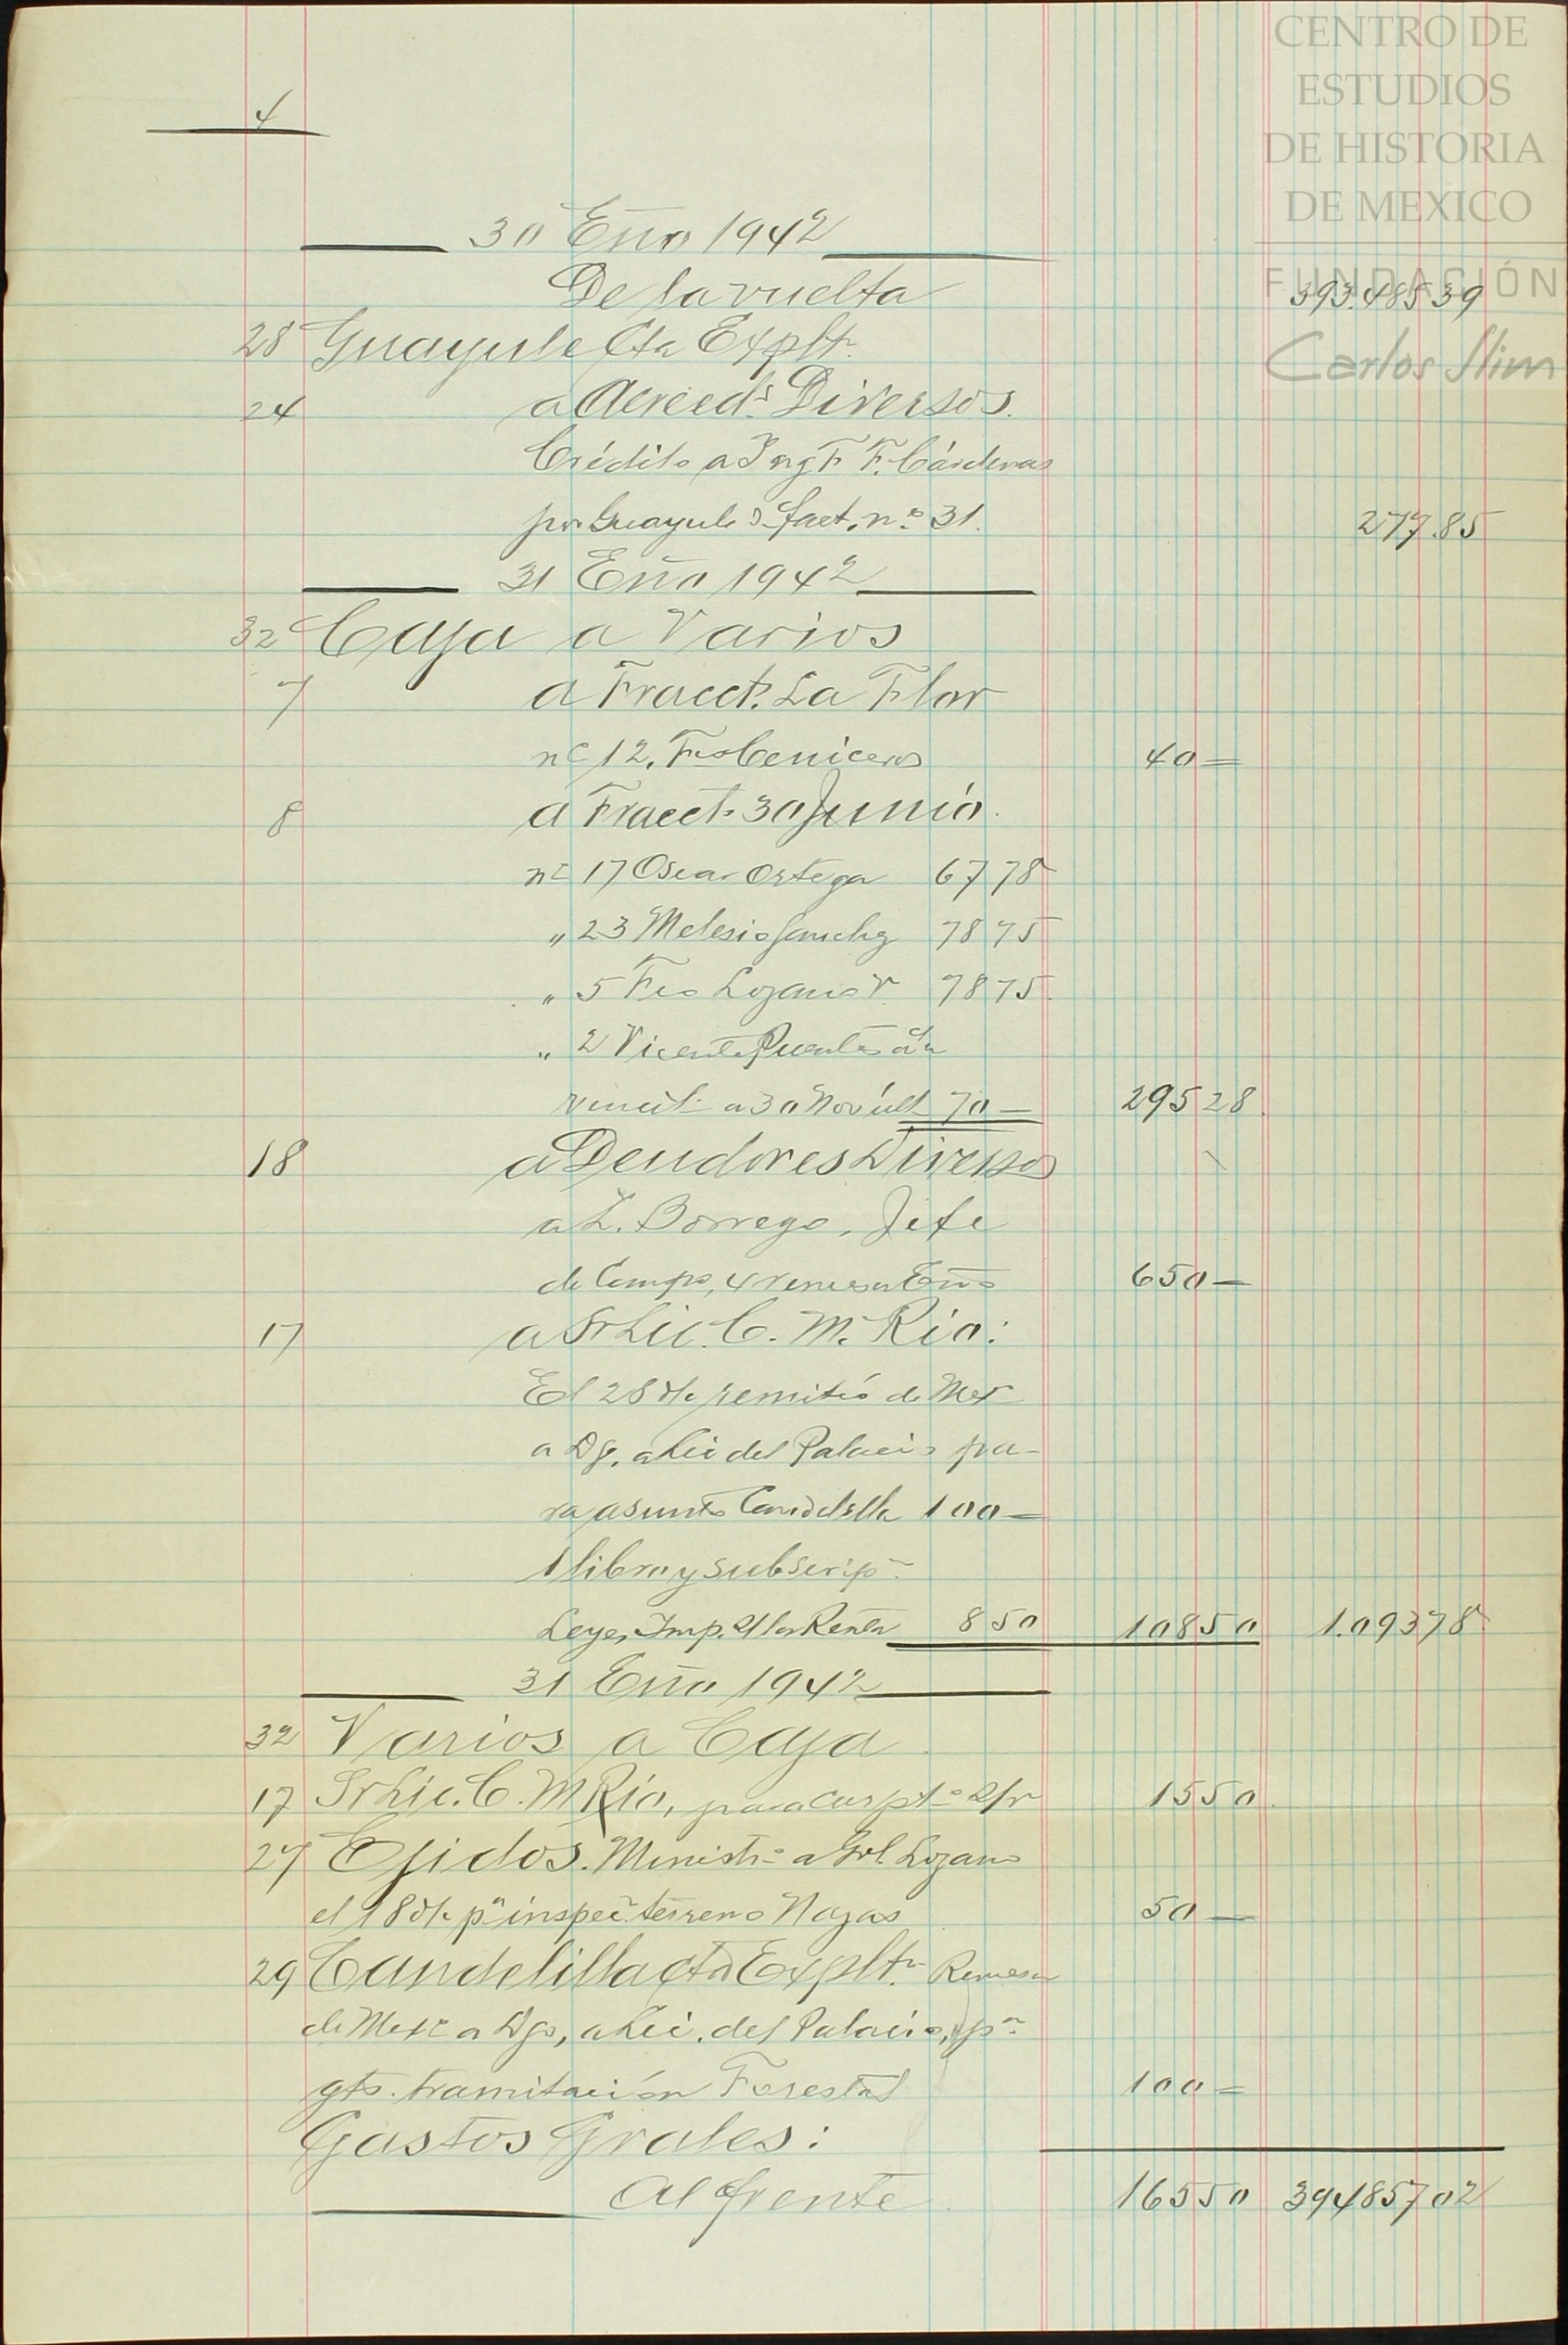 CENTRO DE
ESTUDIOS
DE HISTORIA
DE MEXICO
FUNDACIÓN
Carlos Slim
4
30 Eño 1942
De la vuelta 393.485 39
28 Guayule Cta Explt.
24 a Acreeds Diversos.
Crédito a Ing F F. Cárdenas
por Guayule s/ fact. nº 31. 277.85
31 Eño 1942
32 Caja a Varios
7 a Fracct. La Flor
nº 12. Fco Ceniceros 40 =
8 a Fracct. 30 Junio.
nº 17 Oscar Ortega 67 78
" 23 Melesio Sanchz 78 75
" 5 Fco Lozano V. 78 75
" 2 Vicente Puentes a/c
vencit. a 30 Nov últ 70 — 295 28
18 a Deudores Diversos
a L. Borrego, Jefe
de Campo, 4 remesa Eño 650 —
17 a Sr Lic. C. M. Río:
El 28 d/c remitió de Mex
a Dgo, a Lic del Palacio pa-
ra asunto Candelilla 100 —
1 libro y subscrip
Leyes Imp. s/ la Renta 8 50 108 50 1.093 78
31 Eño 1942
32 Varios a Caja
17 Sr Lic. C. M Río, para 15 50
27 Ejidos. Ministr. a Grl. Lozano
el 18 d/c pa inspec. terreno Nazas 50 —
29 Candelilla Cta Explt. Remesa
de Mex a Dgo, a Lic. del Palacio, pa
gts. tramitación Forestal 100 =
Gastos Grales:
Al frente 165 50 394857 02